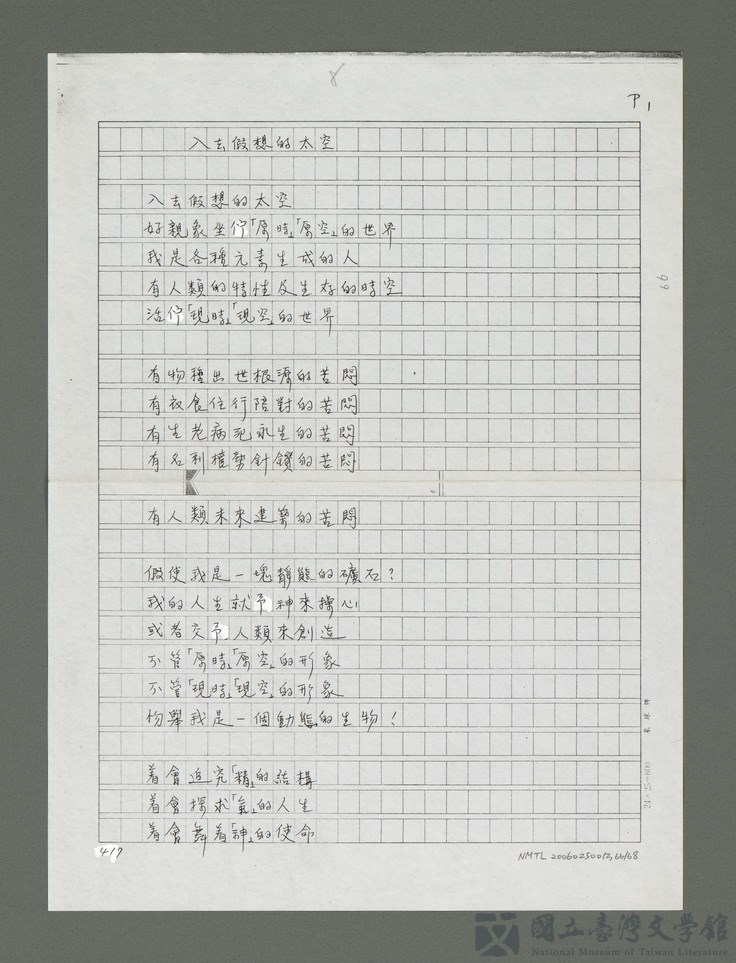 8
P1
入去假想的太空
入去假想的太空
好親象坐佇「原時」「原空」的世界
我是各種元素生成的人
有人類的特性及生存的時空
活佇「現時」「現空」的世界
有物種出世根源的苦悶
有衣食住行陪對的苦悶
有生老病死永生的苦悶
有名利權勢針鑽的苦悶
有人類未來建築的苦悶
假使我是一塊靜態的礦石?
我的人生就予神來操心
或者交予人類來創造
不管「原時」「原空」的形象
不管「現時」「現空」的形象
怐舉我是一個動態的生物!
着會追究「精」的結構
着會探求「氣」的人生
着會舞着「神」的使命
417
66
24×25=600
NMTL 20060250012,66/68
國立臺灣文學館
National Museum of Taiwan Literature